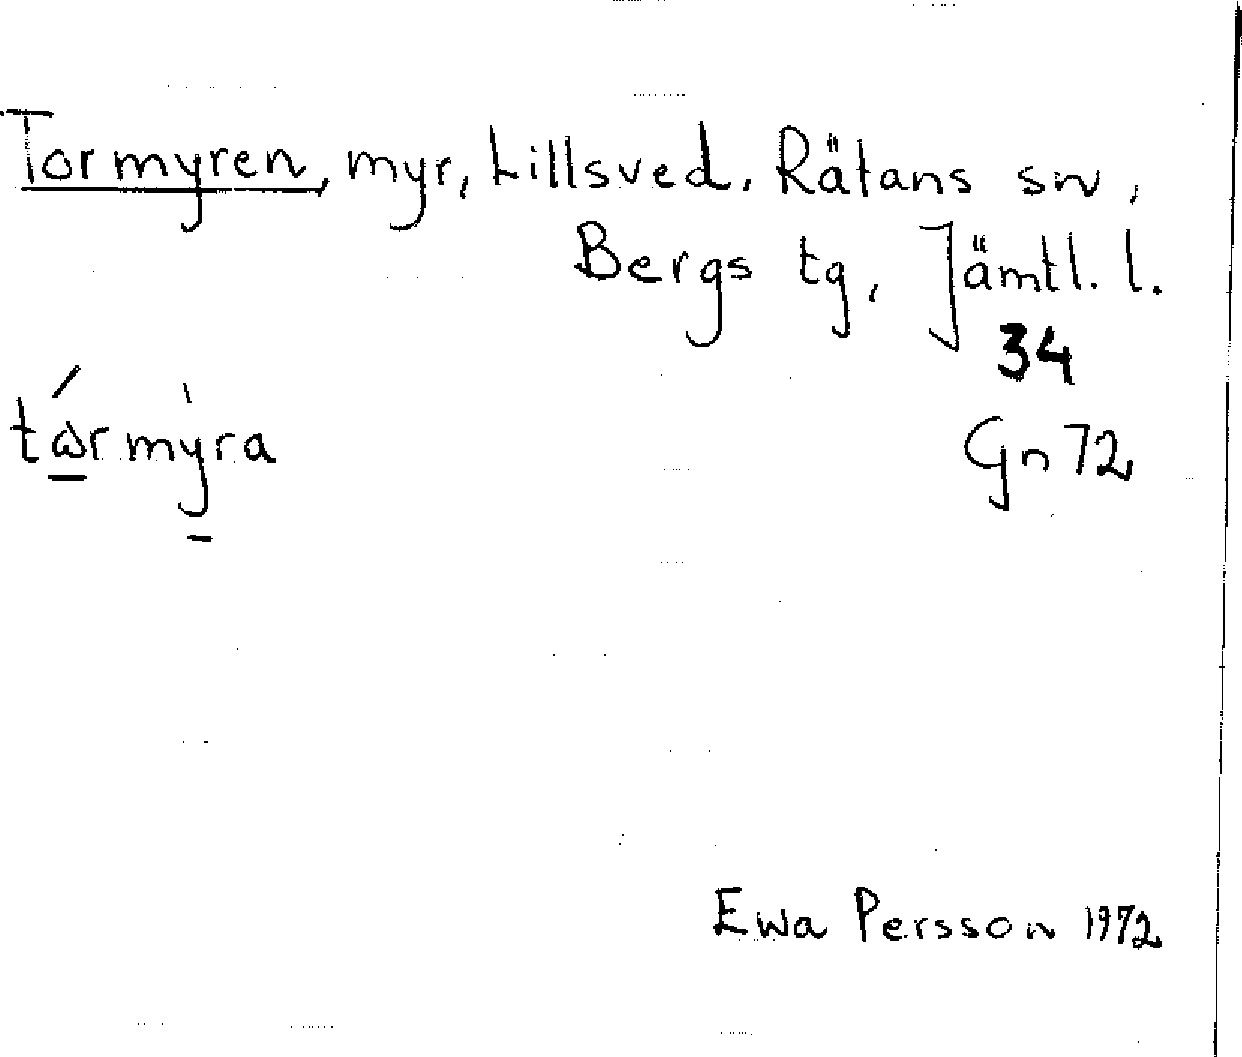 Tormyren, myr, Lillsved, Rätans sn,
Bergs tg, Jämtl. l.
34
tώ̲rmỳ̲ra
Gn 72
Ewa Persson 1972